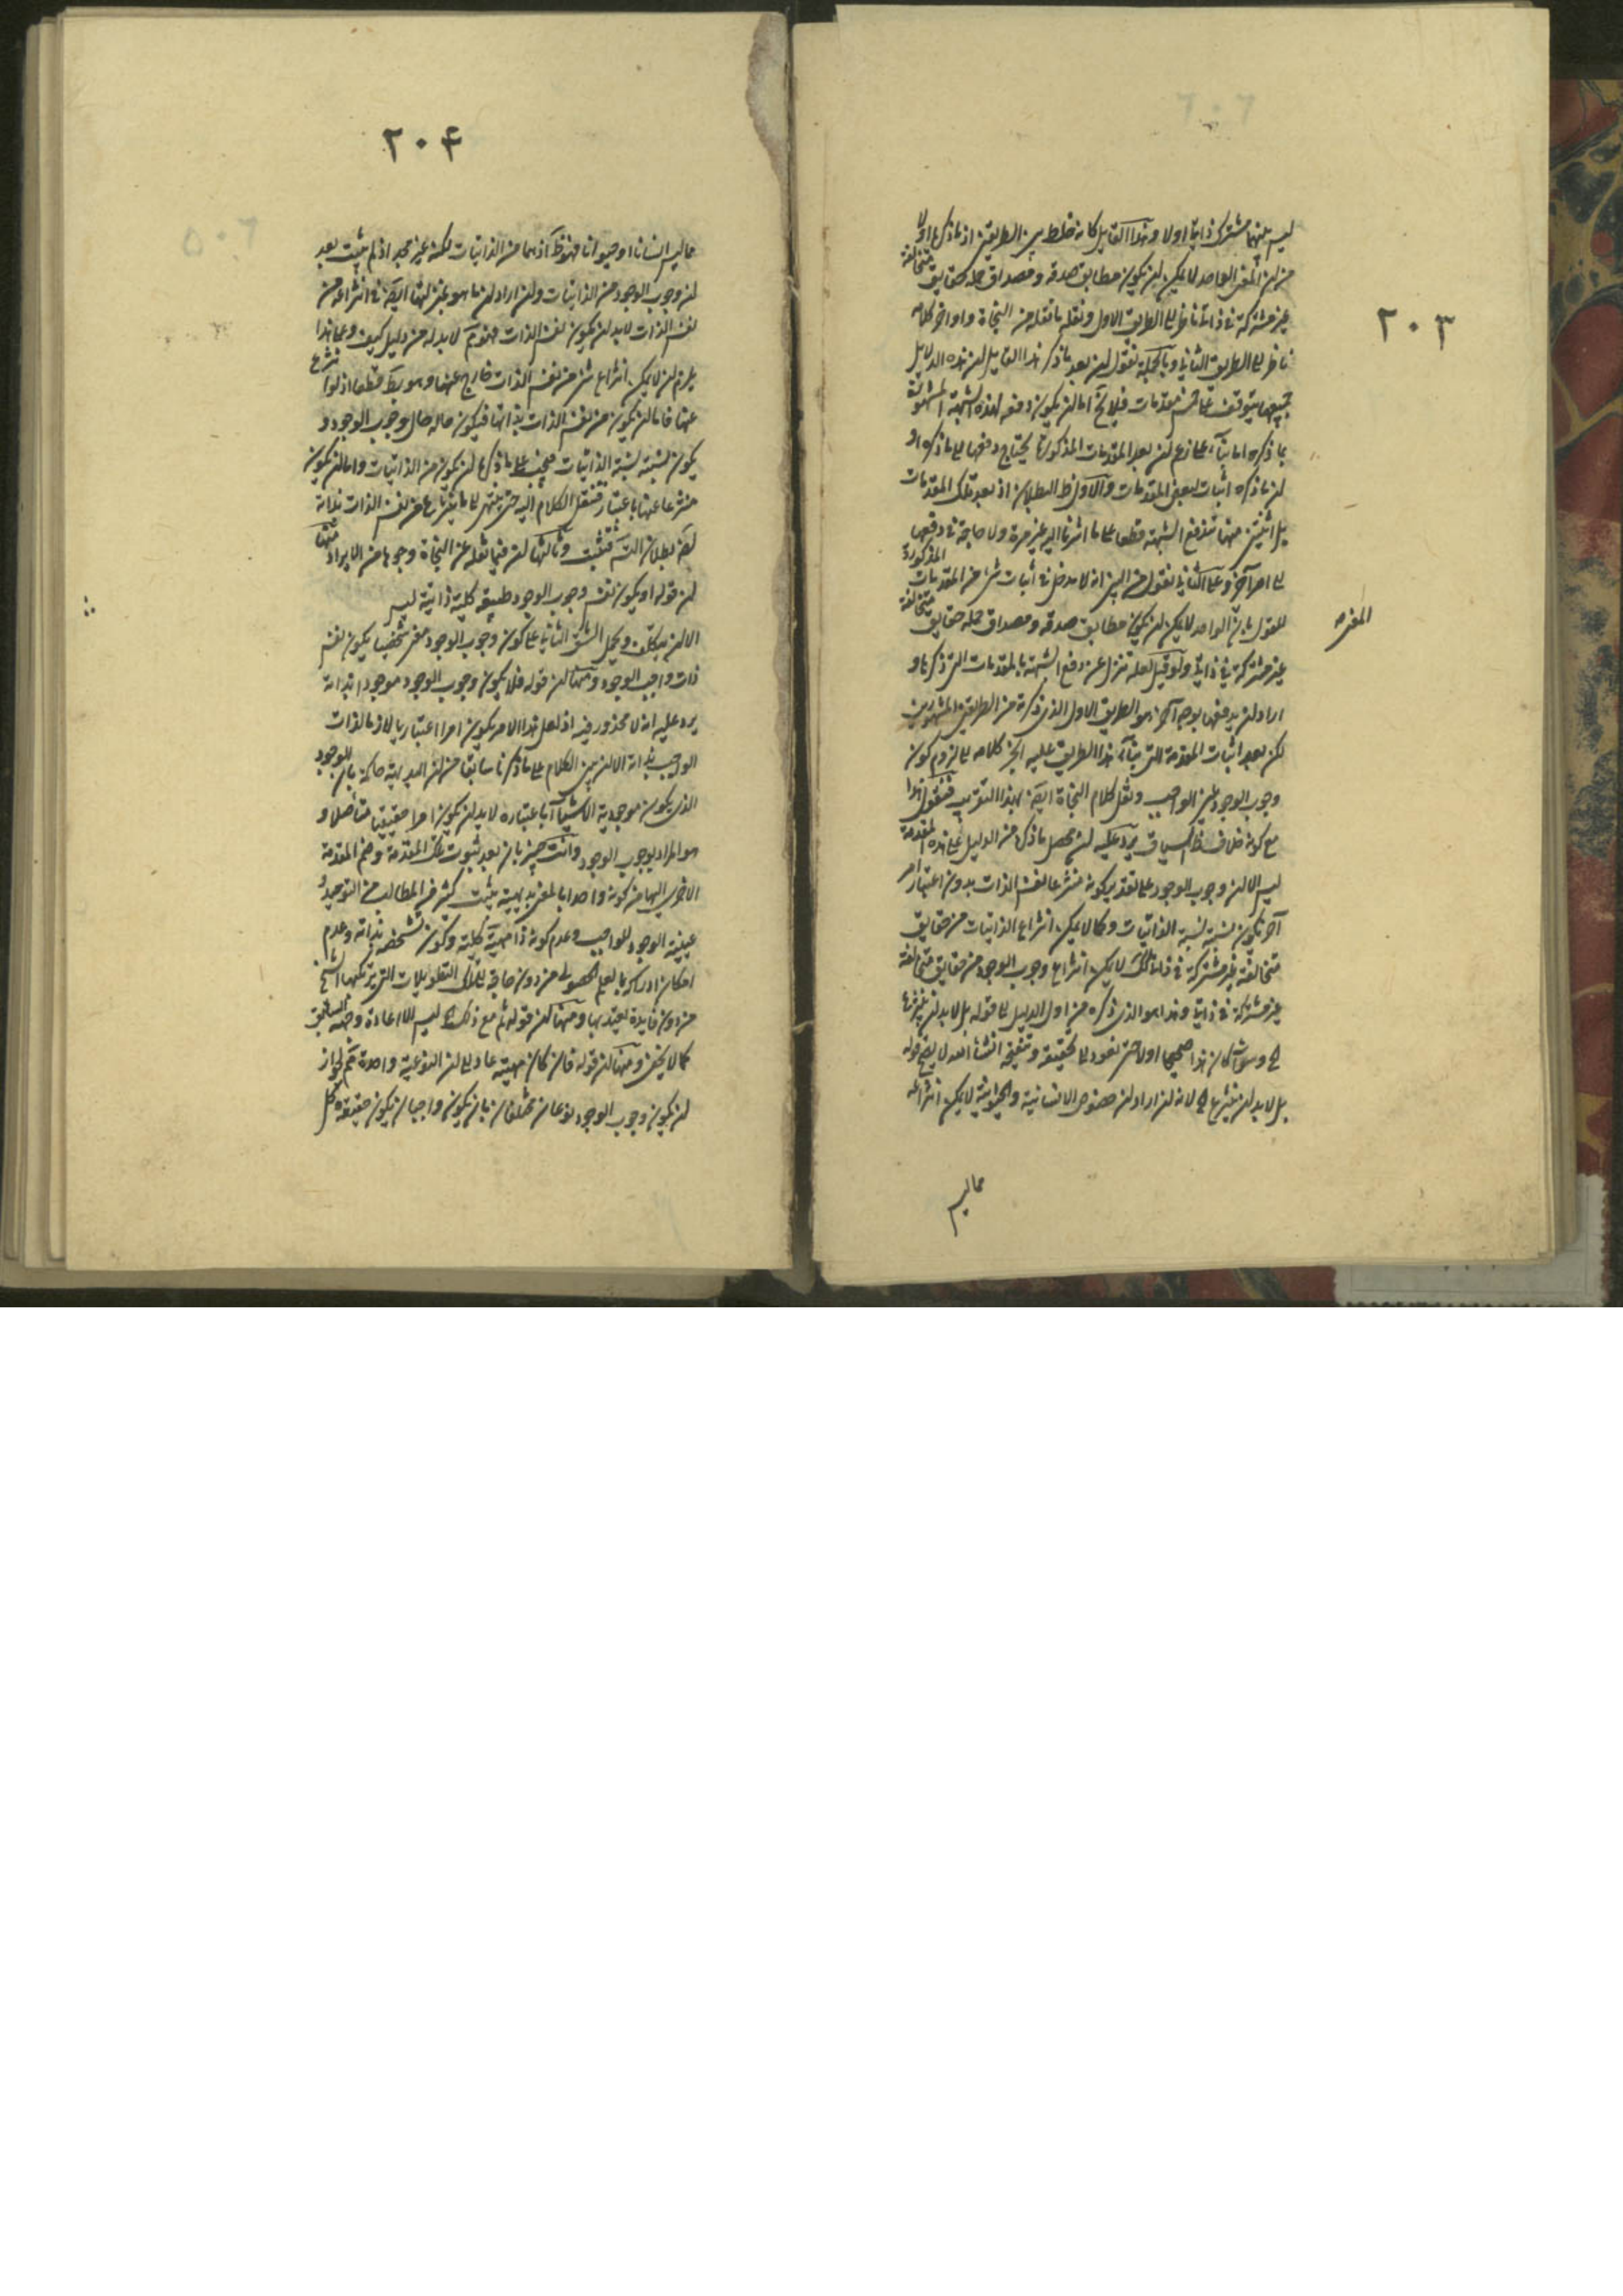 ٢٠٣
ليس بينهما مشترك ذاتي اولا وهذا القايل كانه خلط بين الطريقين اذ ما ذكره اولا
من ان المعنى الواحد لا يمكن ان يكون مطابق صدقه ومصداق حمله حقايق متخالفة
غير مشتركة في ذاتي ناظر الى الطريق الاول ونقله ما نقله من النجاة واواخر كلامه
ناظر الى الطريق الثاني وبالجملة نقول ان بعد ما ذكر هذا القايل ان هذه الدلايل
جميعها يتوقف على مقدمات فلا يخ اما ان يكون دفعه لهذه الشبهة المشهورة
بما ذكره اما بناء على زعم ان بعد المقدمات المذكورة يحتاج دفعها الى ما ذكره او
ان ما ذكره اثبات لبعض المقدمات والاول ظ البطلان اذ بعد تلك المقدمات
بل اثنين منها تندفع الشبهة قطعا على ما اشرنا اليه غير مرة ولا حاجة في دفعها
الى امر آخر وعلى الثاني نقول من البين انه لا مدخل في اثبات شئ من المقدمات المذكورة
للقول بان الواحد لا يمكن ان يكون مطابق صدقه ومصداق حمله حقايق متخالفة
المعنى
غير مشتركة في ذاتي ولو قيل لعله تنزل عن دفع الشبهة بالمقدمات التي ذكرها و
اراد ان يدفعها بوجه آخر هو الطريق الاول الذي ذكرته من الطريقين المشهورين
لكن بعد اثبات المقدمة التي بناء هذا الطريق عليه انجر كلامه الى لزوم كون
وجوب الوجود عين الواجب ونقل كلام النجاة ايضا بهذا التقريب فنقول هذا
مع كونه خلاف ظ السياق يرد عليه ان محصل ما ذكره من الدليل على هذه المقدمة
ليس الا ان وجوب الوجود على تقدير كونه منتزعا لنفس الذات بدون اعتبار امر
آخر يكون نسبته نسبة الذاتيات وكما لا يمكن انتزاع الذاتيات من حقايق
متخالفة غير مشتركة في ذاتي كك لا يمكن انتزاع وجوب الوجود من حقايق متخالفة
غير مشتركة في ذاتي وهذا هو الذي ذكره من اول الدليل الى قوله بل لا بد ان ينتزعها
كان هذا صحيحا اولا حتى نعود الى تحقيقه
بل لا بد ان ينتزعها الخ لانه ان اراد ان خصوص الانسانية والحيوانية لا يمكن انتزاعه
مما ليس
٢٠۴
مما ليس انسانا او حيوانا فهو ظ اذ هما من الذاتيات لكنه غير مجد اذ لم يثبت بعد
ان وجوب الوجود من الذاتيات وان اراد ان ما هو بمنزلتها ايضا في انتزاعه من
نفس الذات لا بد ان يكون نفس الذات فهو مم لا بد له من دليل كيف وعلى هذا
يلزم ان لا يمكن انتزاع شئ من نفس الذات خارج عنها وهو بط قطعا اذ لو انتزع
عنها فاما ان يكون من نفس الذات بذاتها فيكون حاله حال وجوب الوجود و
يكون نسبته نسبة الذاتيات فيجب على ما ذكره ان يكون من الذاتيات واما ان يكون
منتزعا عنها باعتبار فننقل الكلام اليه حتى ينتهي الى ما ينتزع عن نفس الذات بذاته
وثالثها ان فيما نقله عن النجاة وجوها من الايراد منها
ان قوله او يكون نفس وجوب الوجود طبيعة كلية ذاتية ليس
الا ان يتكلف ويحمل الشق الثاني على كون وجوب الوجود معنى شخصيا يكون نفس
ذات واجب الوجود ومنها ان قوله فلا يكون وجوب الوجود موجودا بذاته
يرد عليه انه لا محذور فيه اذ لعل هذا الامر يكون امرا اعتباريا لازما لذات
الواجب بذاته الا ان يبين الكلام على ما ذكرنا سابقا من ان البديهة حاكمة بان الوجود
الذي يكون موجودية الاشياء باعتباره لا بد ان يكون امرا حقيقيا متأصلا و
هو المراد بوجوب الوجود وانت خبير بان بعد ثبوت تلك المقدمة وضم المقدمة
الاخرى اليها من كونه واحدا بالمعنى بديهية يثبت كثير من المطالب من التوحيد و
عينية الوجود للواجب وعدم كونه ذا مهية كلية وكون تشخصه بذاته وعدم
امكان ادراكه بالعلم الحصولي من دون حاجة بتلك التطويلات التي يرتكبها الشيخ
من دون فايدة يعتد بها ومنها ان قوله ثم مع ذلك الخ ليس الا اعادة وجهه السابق
كما لا يخفى ومنها ان قوله فان كان مهيته عاد الى ان النوعية واحدة مم لجواز
ان يكون وجوب الوجود نوعان مختلفان بان يكون واجبان يكون حقيقة كل